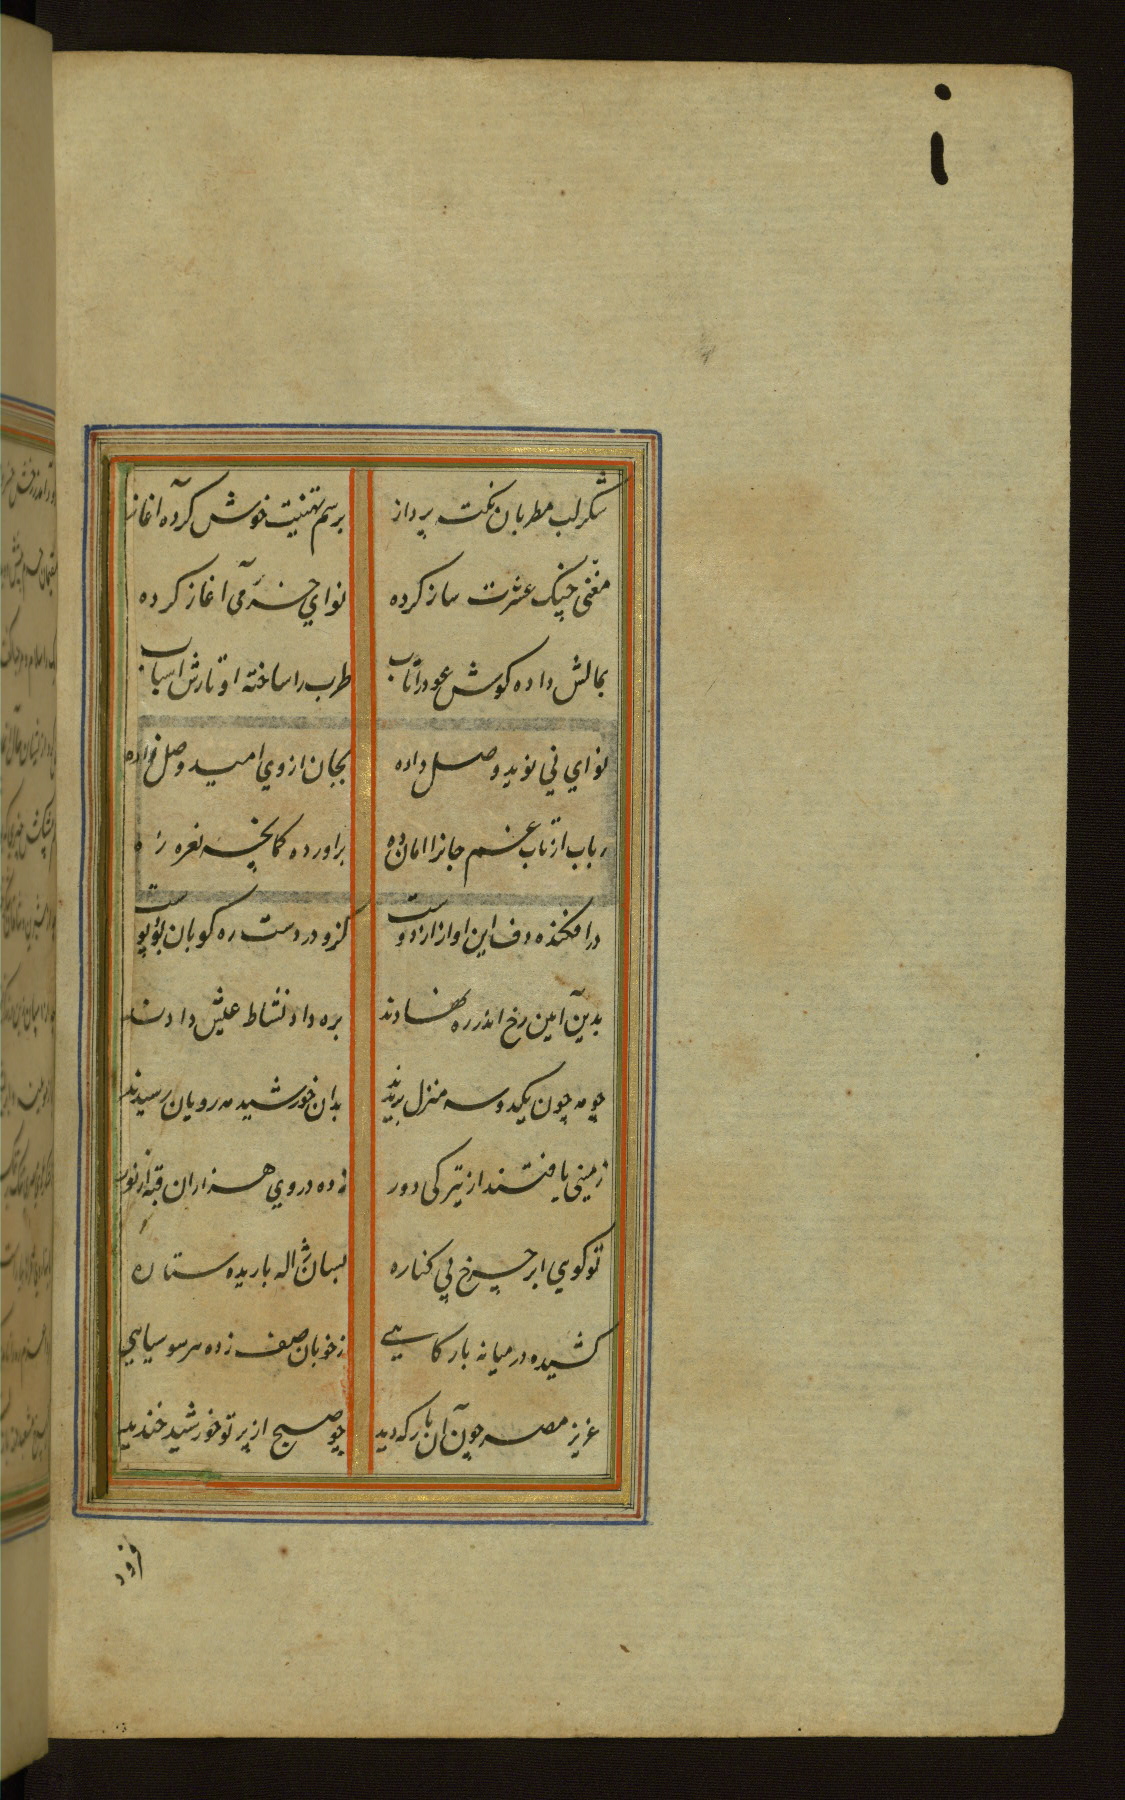 شکر لب مطربان نکته پرداز برسم تهنیت خوش کرده آغاز
مغنی چنک عشرت ساز کرده نوای خرمی آغاز کرده
بمالش داده کوش عود را تاب طرب را ساخته اوتارش اسباب
نوای نی نوید وصل داده بجان از وی امید وصل زاده
رباب از تاب غم جانرا امان ده براورده کمانچه نعره زه
درافکنده دف این اواز از دوست کزو در دست ره کوبان بود پوست
بدین آیین رخ اندر ره نهادند بره داد نشاط عیش دادند
چو مه چون یکدو سه منزل بریدند بدان خورشید مه رویان رسیدند
زمینی یافتند از تیرکی دور زده در وی هزاران قبه از نور
تو کوی ابر چرخ بی کناره بسان ژاله باریده ستاره
کشیده در میانه بارکاهی ز خوبان صف زده هر سو سپاهی
عزیز مصر چون آن بارکه دید چو صبح از پرتو خورشید خندید
فرود